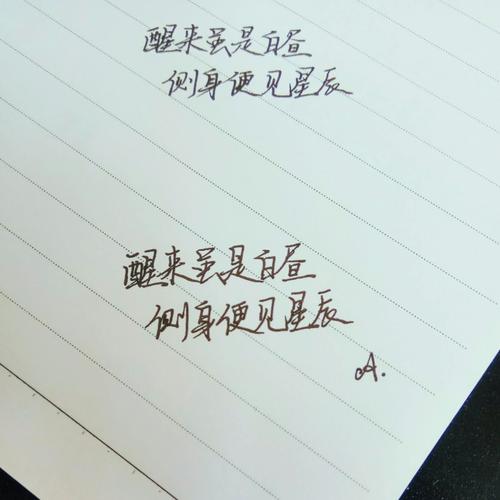 醒来虽是白昼
侧身便见星辰
醒来虽是白昼
侧身便见星辰
A.